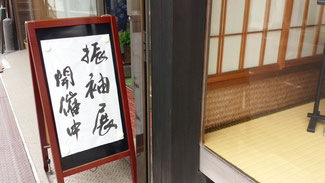 振袖展
開催中